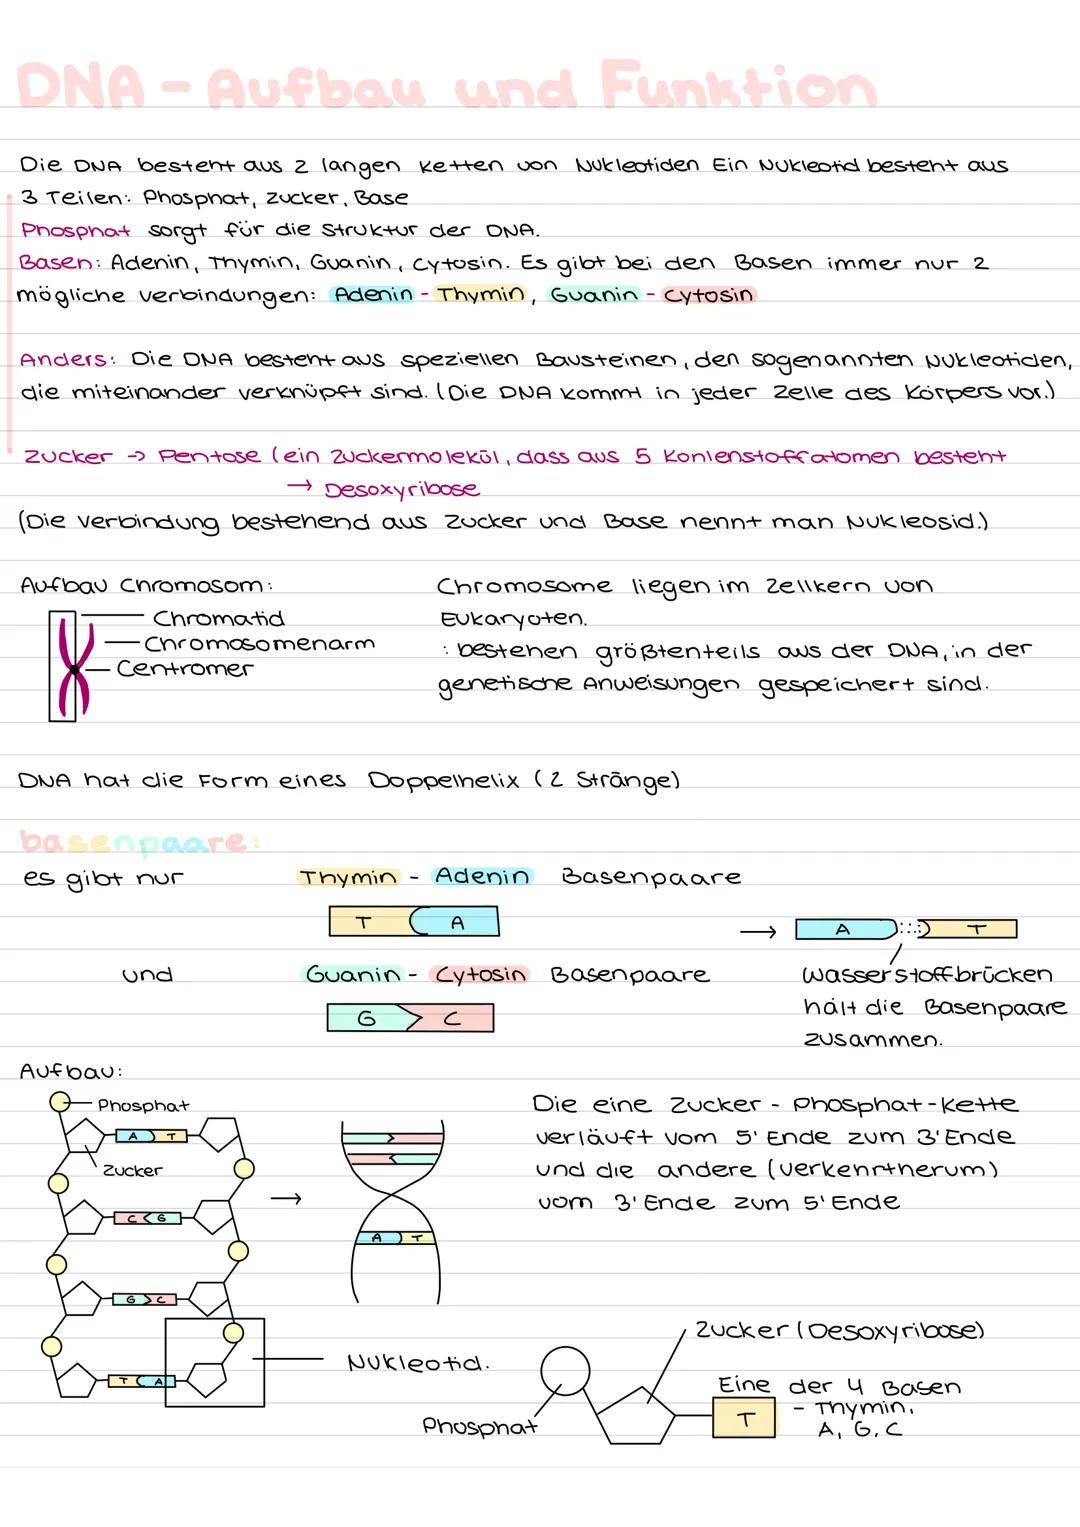 DNA - Aufbau und Funktion
Die DNA besteht aus 2 langen Ketten von Nukleotiden Ein Nukleotid besteht aus
3 Teilen: Phosphat, Zucker, Base
Phosphat sorgt für die Struktur der DNA.
Basen: Adenin, Thymin, Guanin, Cytosin. Es gibt bei den Basen immer nur 2
mögliche Verbindungen: Adenin - Thymin, Guanin - Cytosin
Anders: Die DNA besteht aus speziellen Bausteinen, den sogenannten Nukleotiden,
die miteinander verknüpft sind. (Die DNA kommt in jeder Zelle des Körpers vor.)
Zucker → Pentose (ein Zuckermolekül, dass aus 5 Kohlenstoffatomen besteht
→ Desoxyribose
(Die Verbindung bestehend aus Zucker und Base nennt man Nukleosid.)
Aufbau Chromosom:
Chromatid
Chromosomenarm
Centromer
Chromosome liegen im Zellkern von
Eukaryoten.
: bestehen größtenteils aus der DNA, in der
genetische Anweisungen gespeichert sind.
DNA hat die Form eines Doppelhelix (2 Stränge)
basenpaare:
es gibt nur Thymin - Adenin Basenpaare
T A
→ A T
und Guanin - Cytosin Basenpaare
G C
Wasserstoffbrücken
hält die Basenpaare
zusammen.
Aufbau:
Phosphat
A T
Zucker
C G
G C
T A
→
A T
Nukleotid.
Die eine Zucker - Phosphat - Kette
verläuft vom 5' Ende zum 3' Ende
und die andere (verkehrtherum)
vom 3' Ende zum 5' Ende
Zucker (Desoxyribose)
Phosphat
T
Eine der 4 Basen
- Thymin,
A, G, C